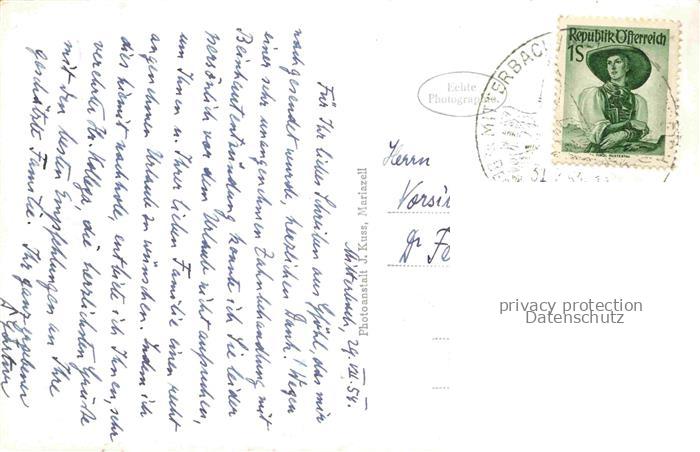 Mitterbach, 29. VII. 54.
Für Ihr liebes Schreiben aus Gföhl, das mir
nachgesendet wurde, herzlichen Dank! Wegen
einer sehr unangenehmen Zahnbehandlung mit
Beinhautentzündung konnte ich Sie leider
persönlich vor dem Urlaube nicht aufsuchen,
um Ihnen u. Ihrer lieben Familie einen recht
angenehmen Urlaub zu wünschen. Indem ich
dies hiemit nachhole, entbiete ich Ihnen, sehr
verehrter Hr. Kollege, die herzlichsten Grüße
mit den besten Empfehlungen an Ihre
geschätzte Familie. Ihr ganz ergebener
Gärtner
Photoanstalt J. Kuss, Mariazell
Echte
Photographie
Republik Österreich
1S
MITTERBACH
Herrn
Vorsi
Dr Fe
privacy protection
Datenschutz